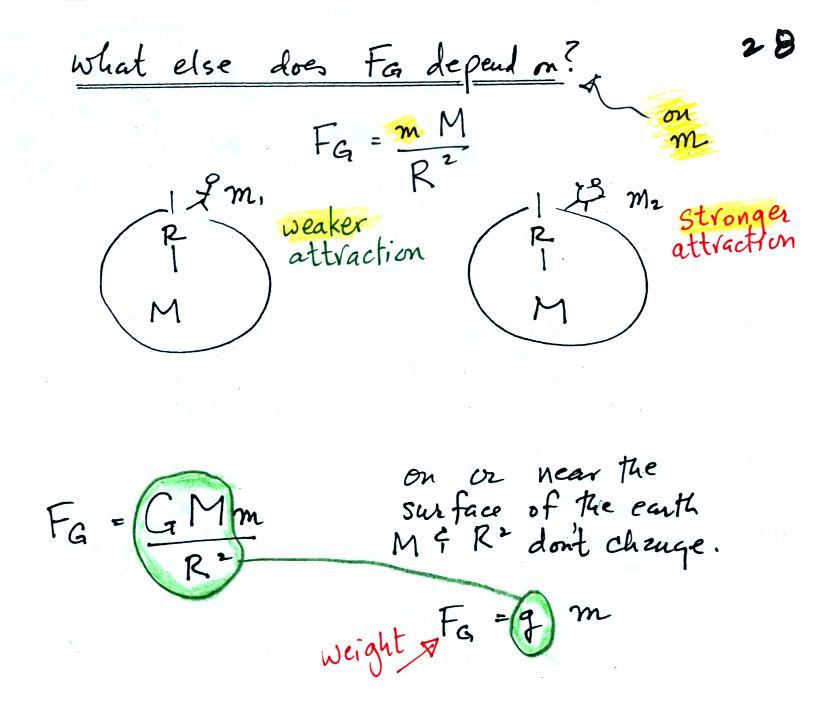 28
What else does FG depend on?
on
m
FG = m M
R²
m₁
weaker
attraction
R
M
m₂
stronger
attraction
R
M
FG = G M m
R²
on or near the
surface of the earth
M & R² don't change.
FG = g m
weight